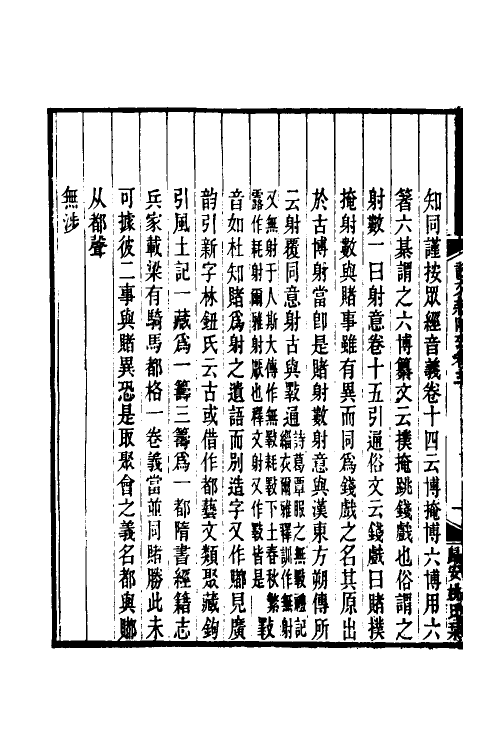 知同謹按眾經音義卷十四云博掩博六博用六
箸六棊謂之六博纂文云撲掩跳錢戲也俗謂之
射數一曰射意卷十五引通俗文云錢戲曰賭撲
掩射數與賭事雖有異而同爲錢戲之名其原出
於古博射當卽是賭射數射意與漢東方朔傳所
云射覆同意射古與斁通詩葛覃服之無斁禮記
緇衣爾雅釋訓作無射
又無射于人斯大傳作無斁耗斁下土春秋繁
露作耗射爾雅射厭也釋文射又作斁皆是斁
音如杜知賭爲射之遺語而別造字又作䣝見廣
韵引新字林鈕氏云古或借作都藝文類聚藏鉤
引風土記一藏爲一籌三籌爲一都隋書經籍志
兵家載梁有騎馬都格一卷義當並同賭勝此未
可據彼二事與賭異恐是取聚會之義名都與䣝
从都聲
無涉